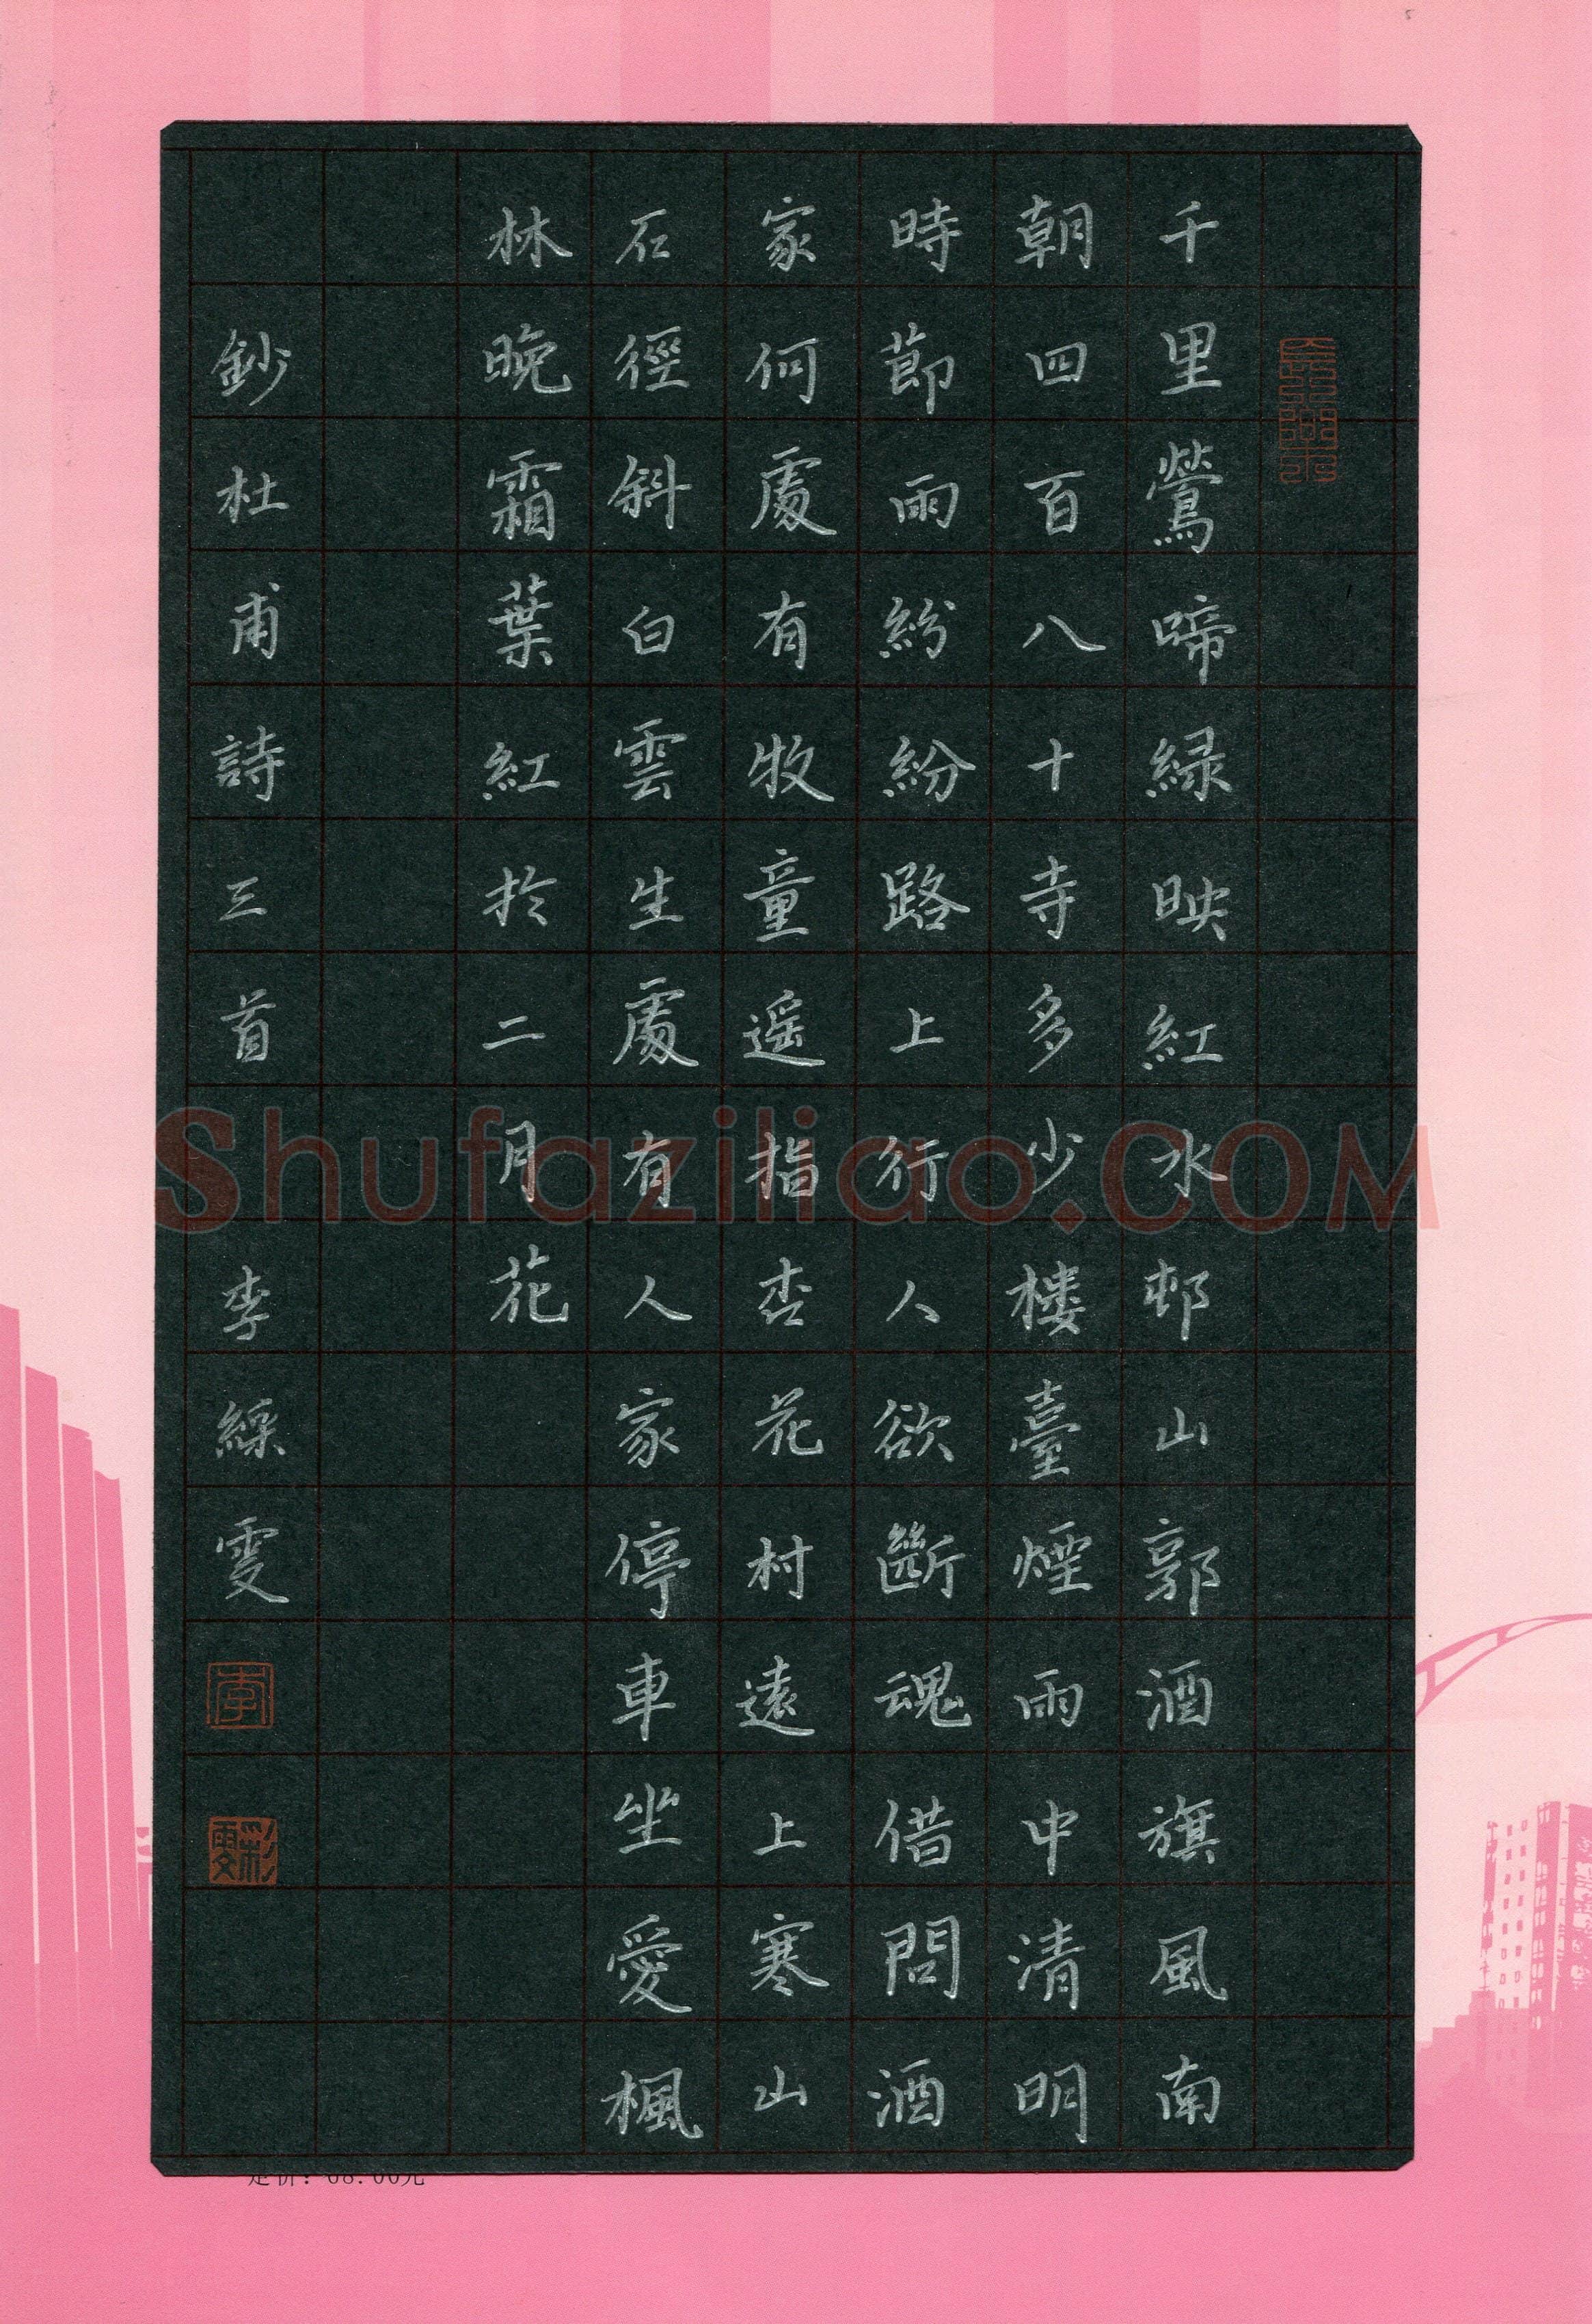 千里鶯啼緑映紅水邨山郭酒旗風南
朝四百八十寺多少楼臺煙雨中清明
時節雨紛紛路上行人欲斷魂借問酒
家何處有牧童遥指杏花村遠上寒山
石徑斜白雲生處有人家停車坐愛楓
林晚霜葉紅於二月花
鈔杜甫詩三首 李綵雯
李
彩雯
Shufaziliao.COM